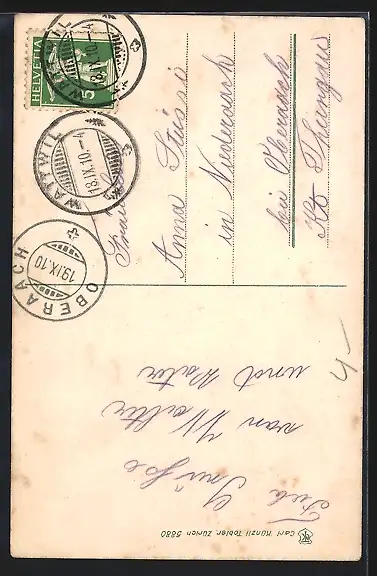 HELVETIA
5
WATTWIL
18.IX.10.-4
WATTWIL
18.IX.10.-4
OBERAACH
19.IX.10
Fräulein
Anna Stüssi
in Niederaach
bei Oberaach
Kt. Thurgau
Viele
Grüße
von Walter
und Vater
4-
Carl Künzli Tobler, Zürich 5880